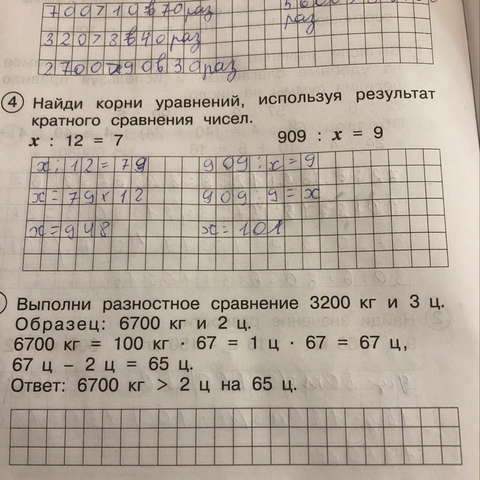 700710 в 70 раз
раз
3207 8 в 40 раз
2700 90 в 30 раз
4 Найди корни уравнений, используя результат
кратного сравнения чисел.
x : 12 = 7
909 : x = 9
x : 12 = 79
909 : x = 9
x = 79 x 12
909 : 9 = x
x = 948
x = 101
Выполни разностное сравнение 3200 кг и 3 ц.
Образец: 6700 кг и 2 ц.
6700 кг = 100 кг · 67 = 1 ц · 67 = 67 ц,
67 ц – 2 ц = 65 ц.
Ответ: 6700 кг > 2 ц на 65 ц.